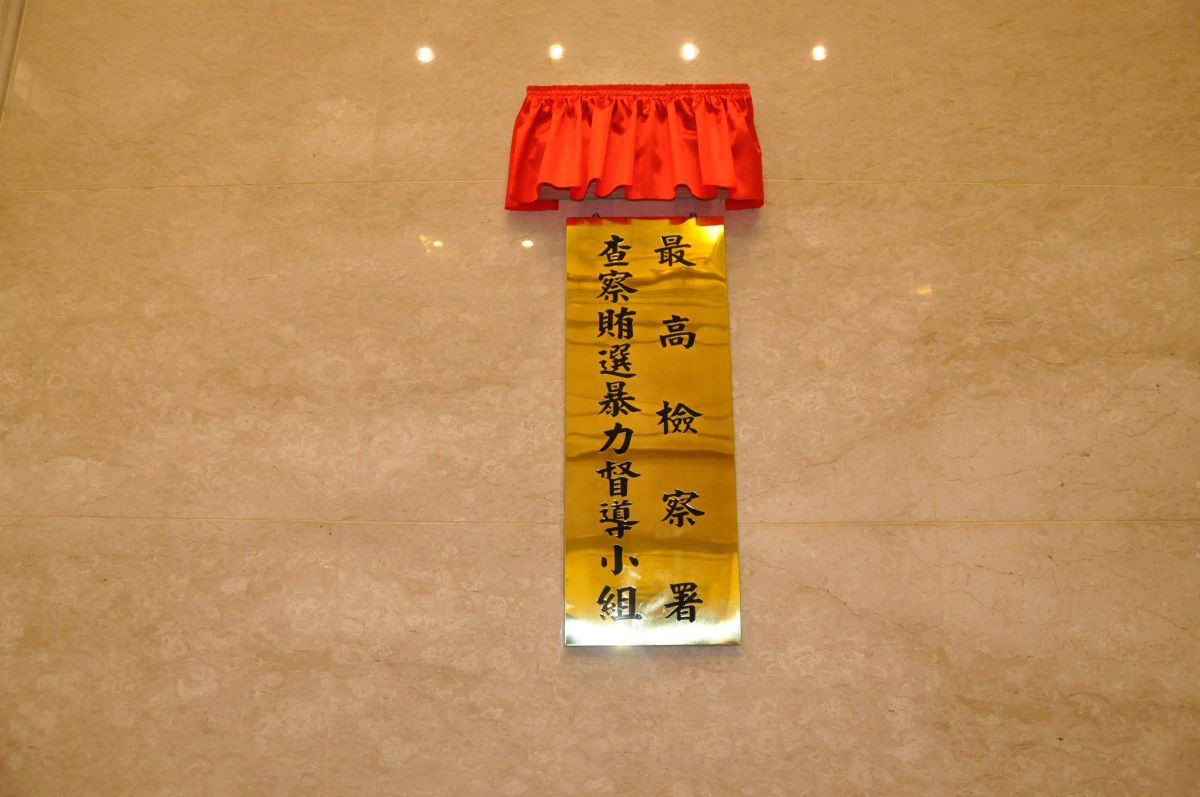 最高檢察署
查察賄選暴力督導小組